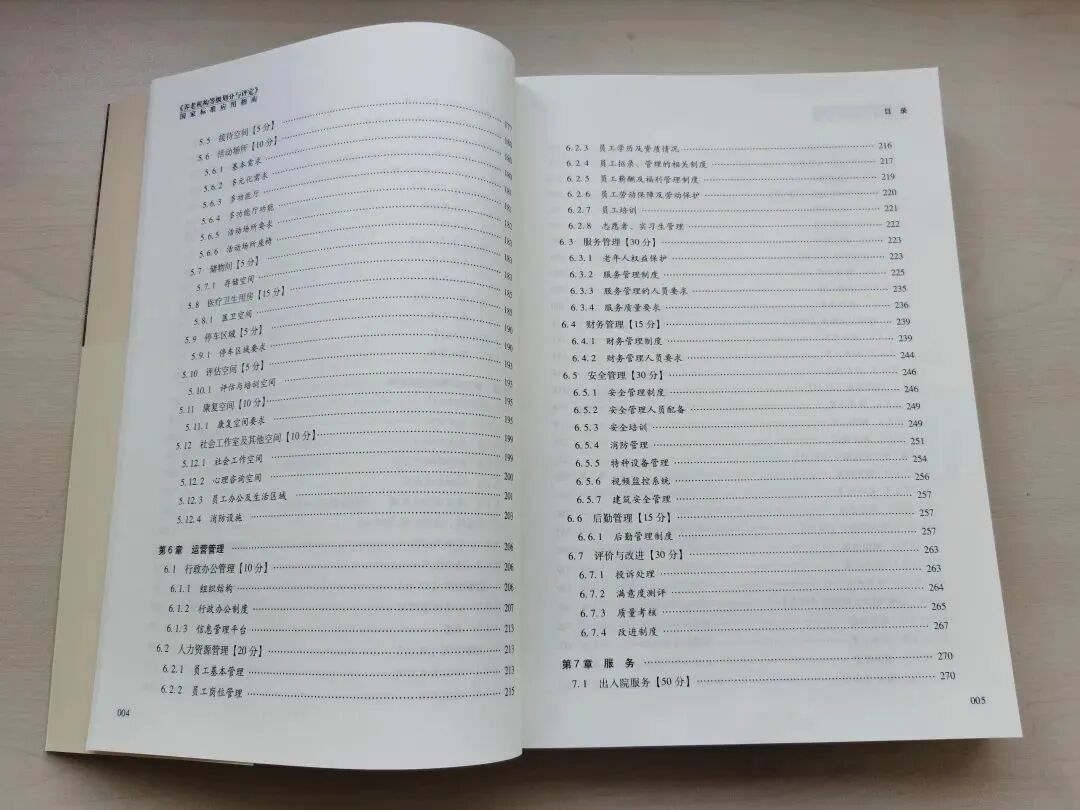 《养老机构等级划分与评定》
国家标准应用指南
5.5 接待空间【5分】 177
5.6 活动场所【10分】 180
5.6.1 基本需求 180
5.6.2 多元化需求 180
5.6.3 多功能厅 180
5.6.4 多功能厅功能 181
5.6.5 活动场所要求 182
5.6.6 活动场所座椅 183
5.7 储物间【5分】 183
5.7.1 存储空间 183
5.8 医疗卫生用房【15分】 185
5.8.1 医卫空间 185
5.9 停车区域【5分】 190
5.9.1 停车区域要求 190
5.10 评估空间【5分】 193
5.10.1 评估与培训空间 193
5.11 康复空间【10分】 195
5.11.1 康复空间要求 195
5.12 社会工作室及其他空间【10分】 199
5.12.1 社会工作空间 199
5.12.2 心理咨询空间 200
5.12.3 员工办公及生活区域 201
5.12.4 消防设施 203
第6章 运营管理 206
6.1 行政办公管理【10分】 206
6.1.1 组织结构 206
6.1.2 行政办公制度 207
6.1.3 信息管理平台 213
6.2 人力资源管理【20分】 213
6.2.1 员工基本管理 213
6.2.2 员工岗位管理 215
004
目 录
6.2.3 员工学历及资质情况 216
6.2.4 员工招录、管理的相关制度 217
6.2.5 员工薪酬及福利管理制度 219
6.2.6 员工劳动保障及劳动保护 220
6.2.7 员工培训 221
6.2.8 志愿者、实习生管理 222
6.3 服务管理【30分】 223
6.3.1 老年人权益保护 223
6.3.2 服务管理制度 225
6.3.3 服务管理的人员要求 235
6.3.4 服务质量要求 236
6.4 财务管理【15分】 239
6.4.1 财务管理制度 239
6.4.2 财务管理人员要求 244
6.5 安全管理【30分】 246
6.5.1 安全管理制度 246
6.5.2 安全管理人员配备 249
6.5.3 安全培训 249
6.5.4 消防管理 251
6.5.5 特种设备管理 254
6.5.6 视频监控系统 256
6.5.7 建筑安全管理 257
6.6 后勤管理【15分】 257
6.6.1 后勤管理制度 257
6.7 评价与改进【30分】 263
6.7.1 投诉处理 263
6.7.2 满意度测评 264
6.7.3 质量考核 265
6.7.4 改进制度 267
第7章 服 务 270
7.1 出入院服务【50分】 270
005